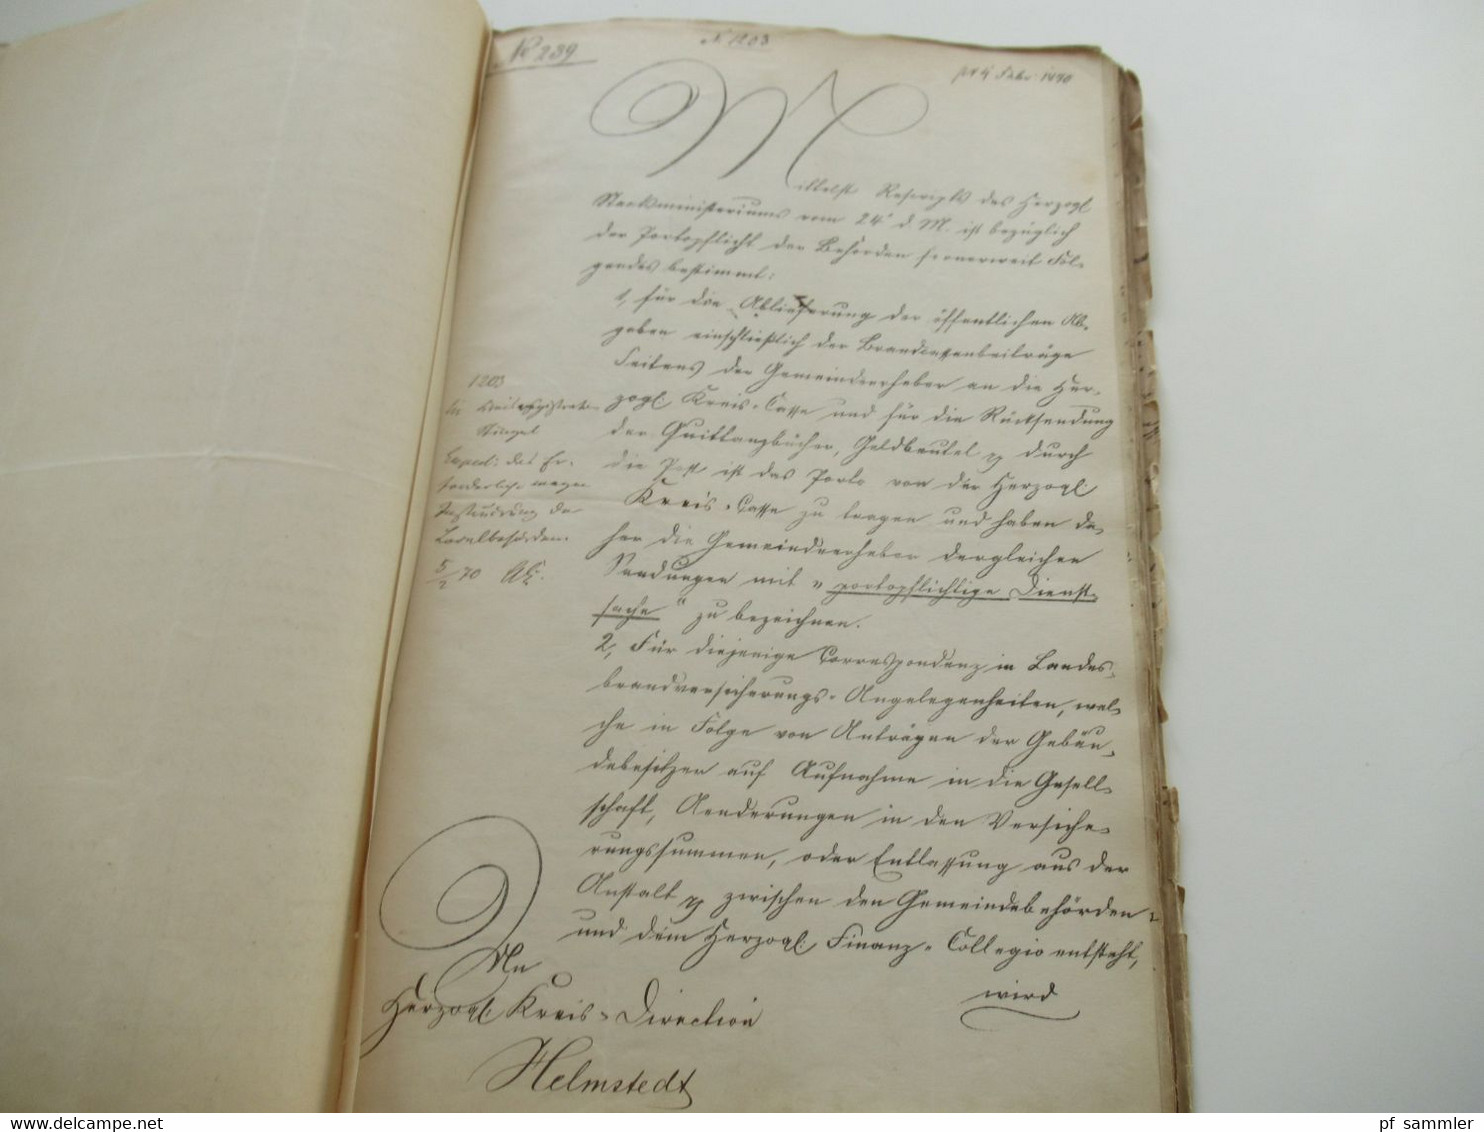 No 239
N 1203
pr 4 Febr. 1870
Mittelst Rescripts des Herzogl.
Staatsministeriums vom 24t d. M. ist bezüglich
der Portopflicht der Behörden fernerweit Fol-
gendes bestimmt:
1, für die Ablieferung der öffentlichen Ab-
gaben einschließlich der Brandcassenbeiträge
Seitens der Gemeindeerheber an die Her-
zogl. Kreis-Casse und für die Rücksendung
der Quittungsbücher, Geldbeutel pp durch
die Post ist das Porto von der Herzogl.
Kreis-Casse zu tragen und haben da-
her die Gemeindeerheber dergleichen
Sendungen mit „portopflichtige Dienst-
sache“ zu bezeichnen.
2, Für diejenige Correspondenz in Landes-
brandversicherungs-Angelegenheiten, wel-
che in Folge von Anträgen der Gebäu-
debesitzer auf Aufnahme in die Gesell-
schaft, Aenderungen in den Versiche-
rungssummen, oder Entlassung aus der
Anstalt pp zwischen den Gemeindebehörden
und dem Herzogl. Finanz-Collegio entsteht,
wird
1203
Exped: das Er-
forderliche wegen
Instruirung der
Localbehörden.
5/2 70
An
Herzogl. Kreis-Direction
Helmstedt
pf sammler